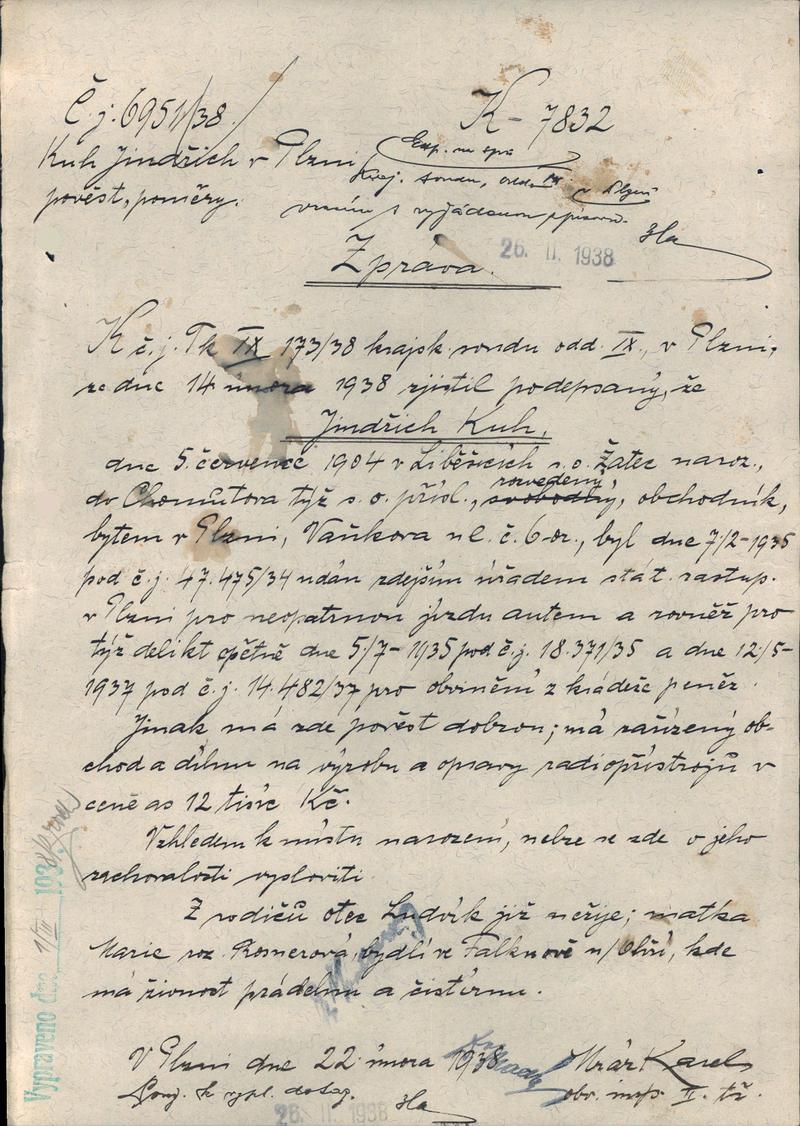 Č.j. 6951/38.
K - 7832
Kuh Jindřich v Plzni
pověst, poměry.
Exp. na spis
Kraj. soudu, odd. IX v Plzni
vracím s vyjádřenou zprávou.
Hla
26. II. 1938
Zpráva.
K č.j. Tk IX 173/38 krajsk. soudu odd. IX., v Plzni,
ze dne 14 února 1938 zjistil podepsaný, že
Jindřich Kuh,
dne 5. července 1904 v Liběšicích s.o. Žatec naroz.,
rozvedený
do Chomutova týž s.o. přísl., svobodný, obchodník,
bytem v Plzni, Vaňkova ul. č. 6 or., byl dne 7/2-1935
pod č.j. 47.475/34 udán zdejším úřadem stát. zastup.
v Plzni pro neopatrnou jízdu autem a rovněž pro
týž delikt opětně dne 5/7-1935 pod č.j. 18.371/35 a dne 12/5-
1937 pod č.j. 14.482/37 pro obvinění z krádeže peněz.
Jinak má zde pověst dobrou; má zařízený ob-
chod a dílnu na výrobu a opravy radiopřístrojů v
ceně as 12 tisíc Kč.
Vzhledem k místu narození, nelze se zde o jeho
zachovalosti vysloviti.
Z rodičů otec Ludvík již nežije; matka
Marie roz. Romerová, bydlí ve Falknově n/Ohří, kde
má živnost prádelnu a čistírnu.
V Plzni dne 22 února 1938
Mráz Karel
obv. insp. II. tř.
Hla
26. II. 1938
Vypraveno dne 1/III 1938